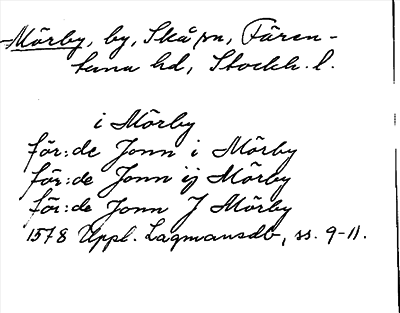 Mörby, by, Skå sn, Fären-
tuna hd, Stockh. l.
i Mörby
för:de Jonn i Mörby
för:de Jonn ij Mörby
för:de Jonn J Mörby
1578 Uppl. Lagmansdb, ss. 9-11.